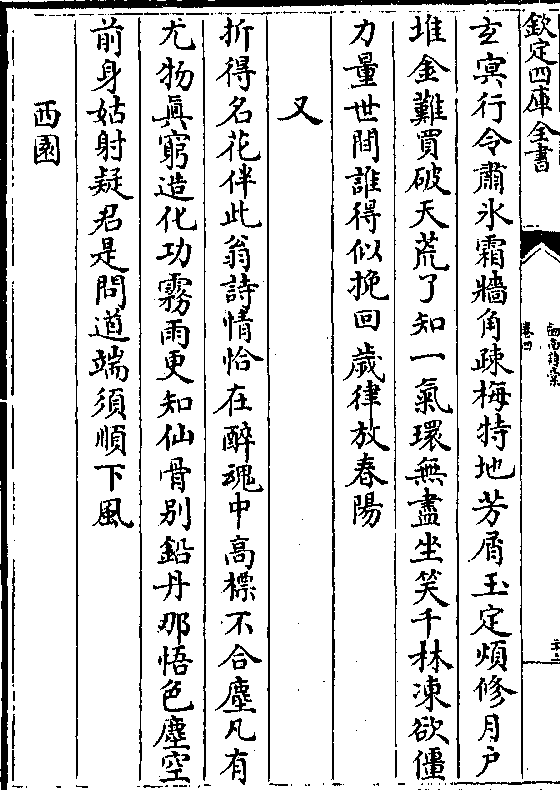 欽定四庫全書
卷四
玄冥行令肅氷霜牆角疎梅特地芳屑玉定煩修月户
堆金難買破天荒了知一氣環無盡坐笑千林凍欲僵
力量世間誰得似挽回歲律放春陽
又
折得名花伴此翁詩情恰在醉魂中高標不合塵凡有
尤物真窮造化功霧雨更知仙骨别鉛丹那悟色塵空
前身姑射疑君是問道端須順下風
西園